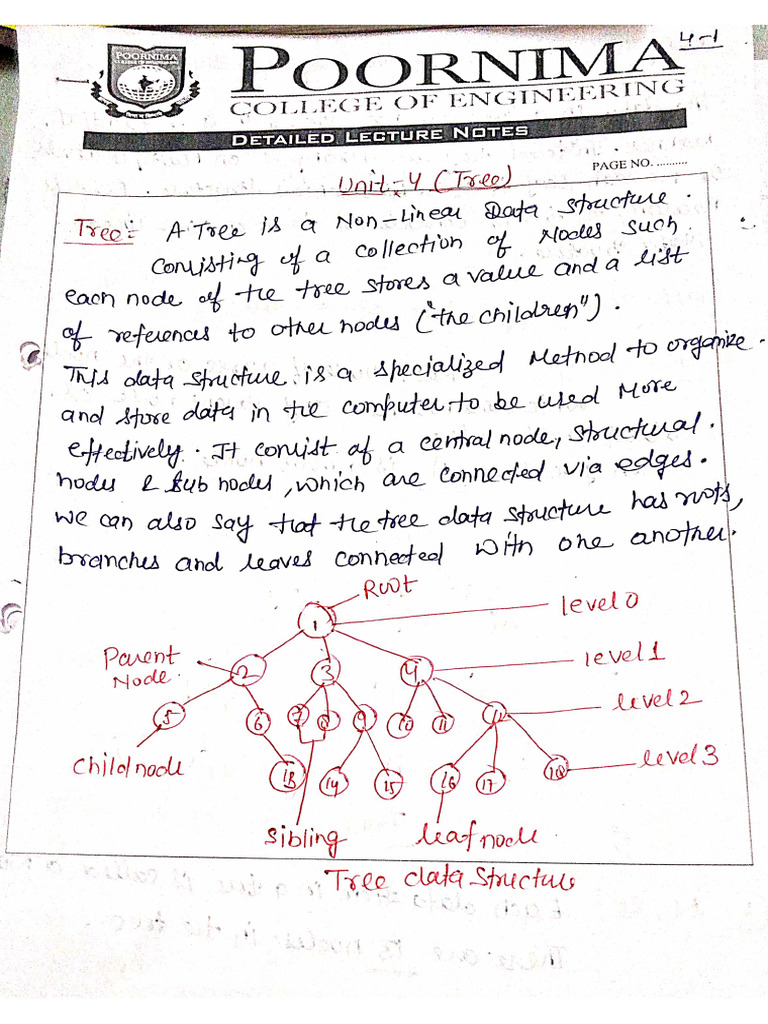 4-1
POORNIMA
COLLEGE OF ENGINEERING
POORNIMA
DETAILED LECTURE NOTES
PAGE NO. ..........
Unit-4 (Tree)
Tree:- A Tree is a Non-Linear Data Structure.
Consisting of a collection of Nodes such
each node of the tree stores a value and a list
of references to other nodes ("the children").
This data structure is a specialized Method to organize.
and store data in the computer to be used More
effectively. It consist of a central node, structural.
nodes & sub nodes, which are connected via edges.
we can also say that the tree data structure has roots,
branches and leaves connected with one another.
Root
1
level 0
Parent
Node
2
3
4
level 1
5
6
7
8
9
10
11
12
level 2
Child node
13
14
15
16
17
18
level 3
Sibling
leaf node
Tree data structure